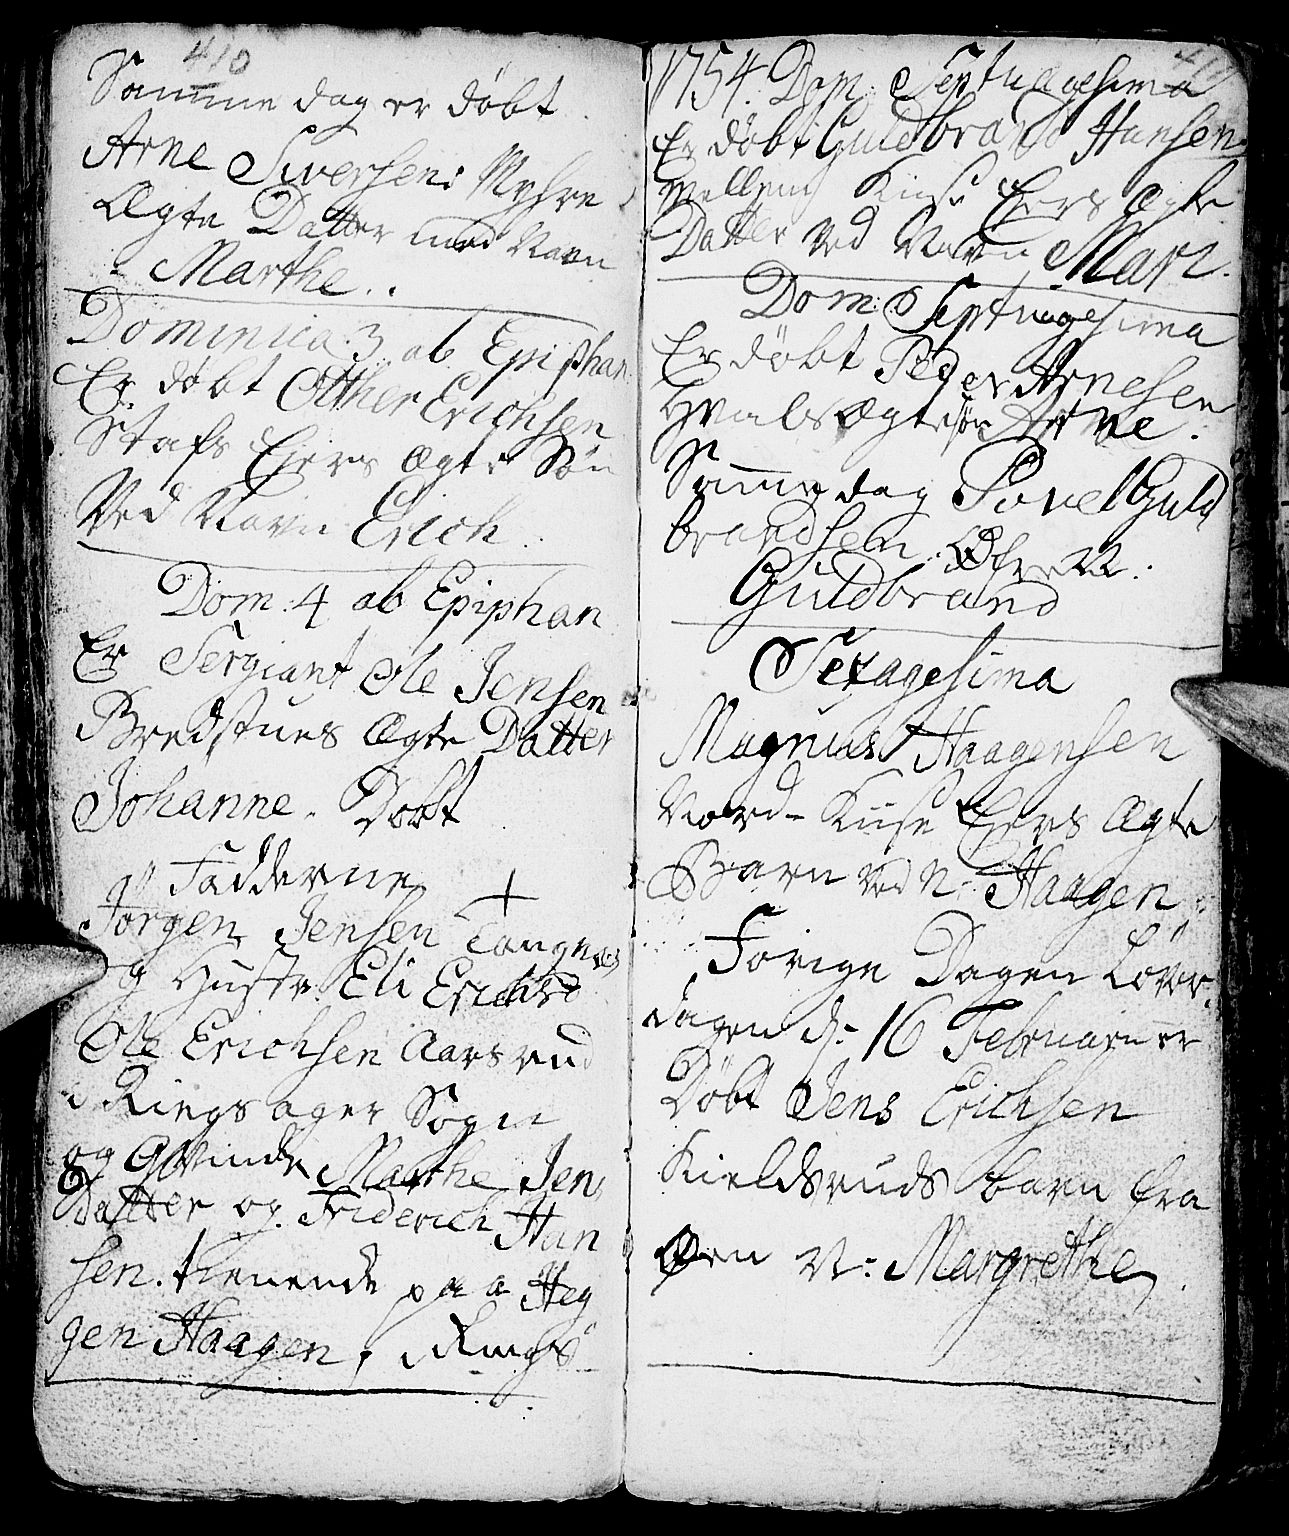 410
Samme dag er døbt
Arne Siversen: Myhre
Ægte Datter med Navn
Marthe..
Dominica 3 ab Epiphan
Er døbt Otther Erichsen
Stafs Ejers Ægte Søn
Ved Navn Erich.
Dom: 4 ab Epiphan
Er Sergiant Ole Jensen
Bredstues Ægte Datter
Johanne. Døbt
Fadderne
Jørgen Jensen Tangnes
og Hustr. Eli Erichsd
Ole Erichsen Aarsrud
i Ringsager Sogn
og Qvinde Marthe Jens
Datter og Friderich Han
sen. tienende paa Heg
gen Haagen, Rings
411
1754. Dom: Septuagesima
Er døbt Guldbrand Hansen
Mellem Kiise Ejers Ægte
Datter Ved Navn Mari.
Dom: Septuagesima
Er døbt Peder Arnesen
Hvals Ægte søn Arne.
Samme dag Povel Guld
brandsen
Guldbrand
Sexagesima
Magnus Haagensen
Nord-Kiise Ejers Ægte
Barn ved N: Haagen
Forige Dagen Løver
dagen d: 16 Februarii er
Døbt Jens Erichsen
Kieldsruds barn fra
Øen N: Margrethe.